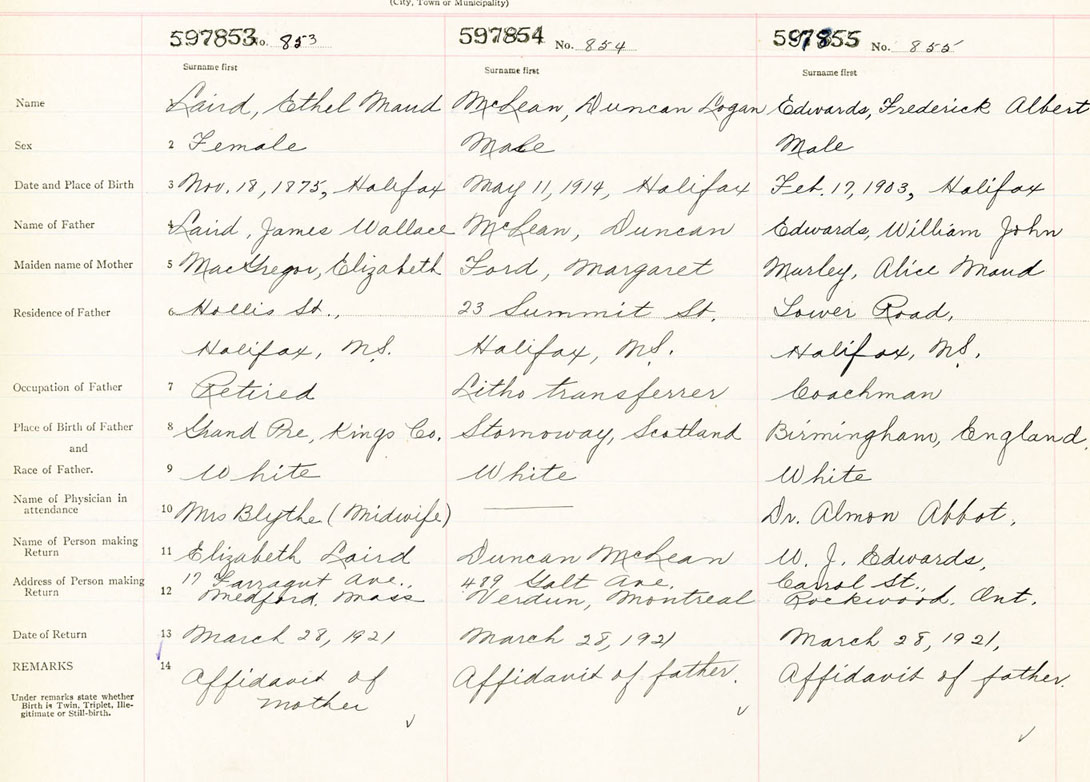 (City, Town or Municipality)
597853 No. 853 597854 No. 854 597855 No. 855
Surname first Surname first Surname first
Name Laird, Ethel Maud McLean, Duncan Logan Edwards, Frederick Albert
Sex 2 Female Male Male
Date and Place of Birth 3 Nov. 18, 1875, Halifax May 11, 1914, Halifax Feb. 17, 1903, Halifax
Name of Father 4 Laird, James Wallace McLean, Duncan Edwards, William John
Maiden name of Mother 5 MacGregor, Elizabeth Ford, Margaret Marley, Alice Maud
Residence of Father 6 Hollis St., 23 Summit St. Lower Road,
Halifax, N.S. Halifax, N.S. Halifax, N.S.
Occupation of Father 7 Retired Litho transferrer Coachman
Place of Birth of Father 8 Grand Pre, Kings Co. Stornoway, Scotland Birmingham, England,
and
Race of Father. 9 White White White
Name of Physician in
attendance 10 Mrs Blythe (Midwife) Dr. Almon Abbot,
Name of Person making
Return 11 Elizabeth Laird Duncan McLean W. J. Edwards,
Address of Person making 17 Farragut Ave., 489 Galt Ave, Carrol St.,
Return 12 Medford, Mass Verdun, Montreal Rockwood, Ont.
Date of Return 13 March 28, 1921 March 28, 1921 March 28, 1921,
REMARKS 14 Affidavit of Affidavit of father. Affidavit of father.
mother
Under remarks state whether
Birth is Twin, Triplet, Ille-
gitimate or Still-birth.